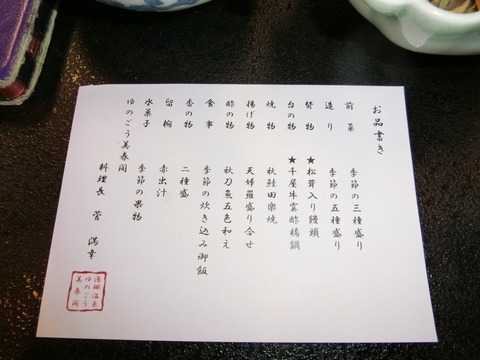 お品書き
前菜 季節の三種盛り
造り 季節の五種盛り
焚物 ★松茸入り饅頭
台の物 ★千屋牛雲酢橘鍋
焼物 秋鮭田楽焼
揚げ物 天婦羅盛り合せ
酢の物 秋刀魚五色和え
食事 季節の炊き込み御飯
香の物 二種盛
留椀 赤出汁
水菓子 季節の果物
ゆのごう美春閣
料理長 菅 満幸
湯郷温泉
ゆのごう
美春閣